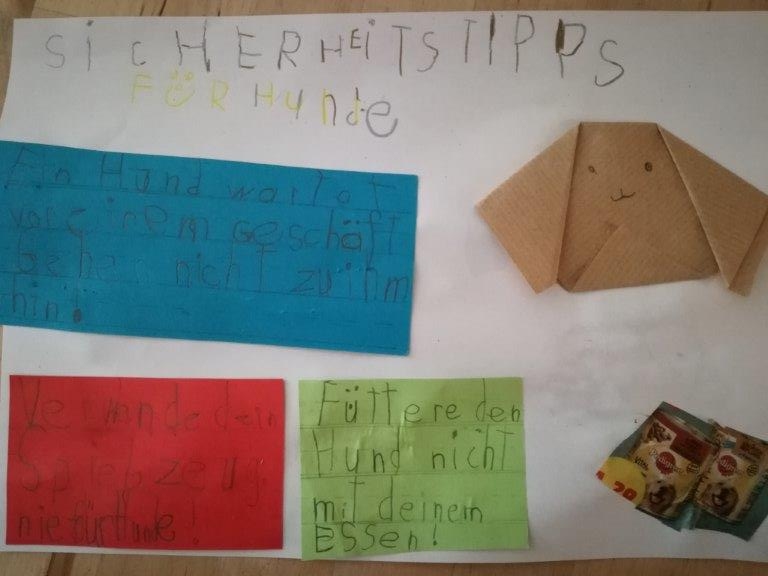 SicHERHEiTSTIPPS
FÜR HUnde
Ein Hund wartet
vor einem Geschäft
Gehe nicht zu ihm
hin!
Verwende dein
Spielzeug
nie für Hunde!
Füttere den
Hund nicht
mit deinem
ESSen!